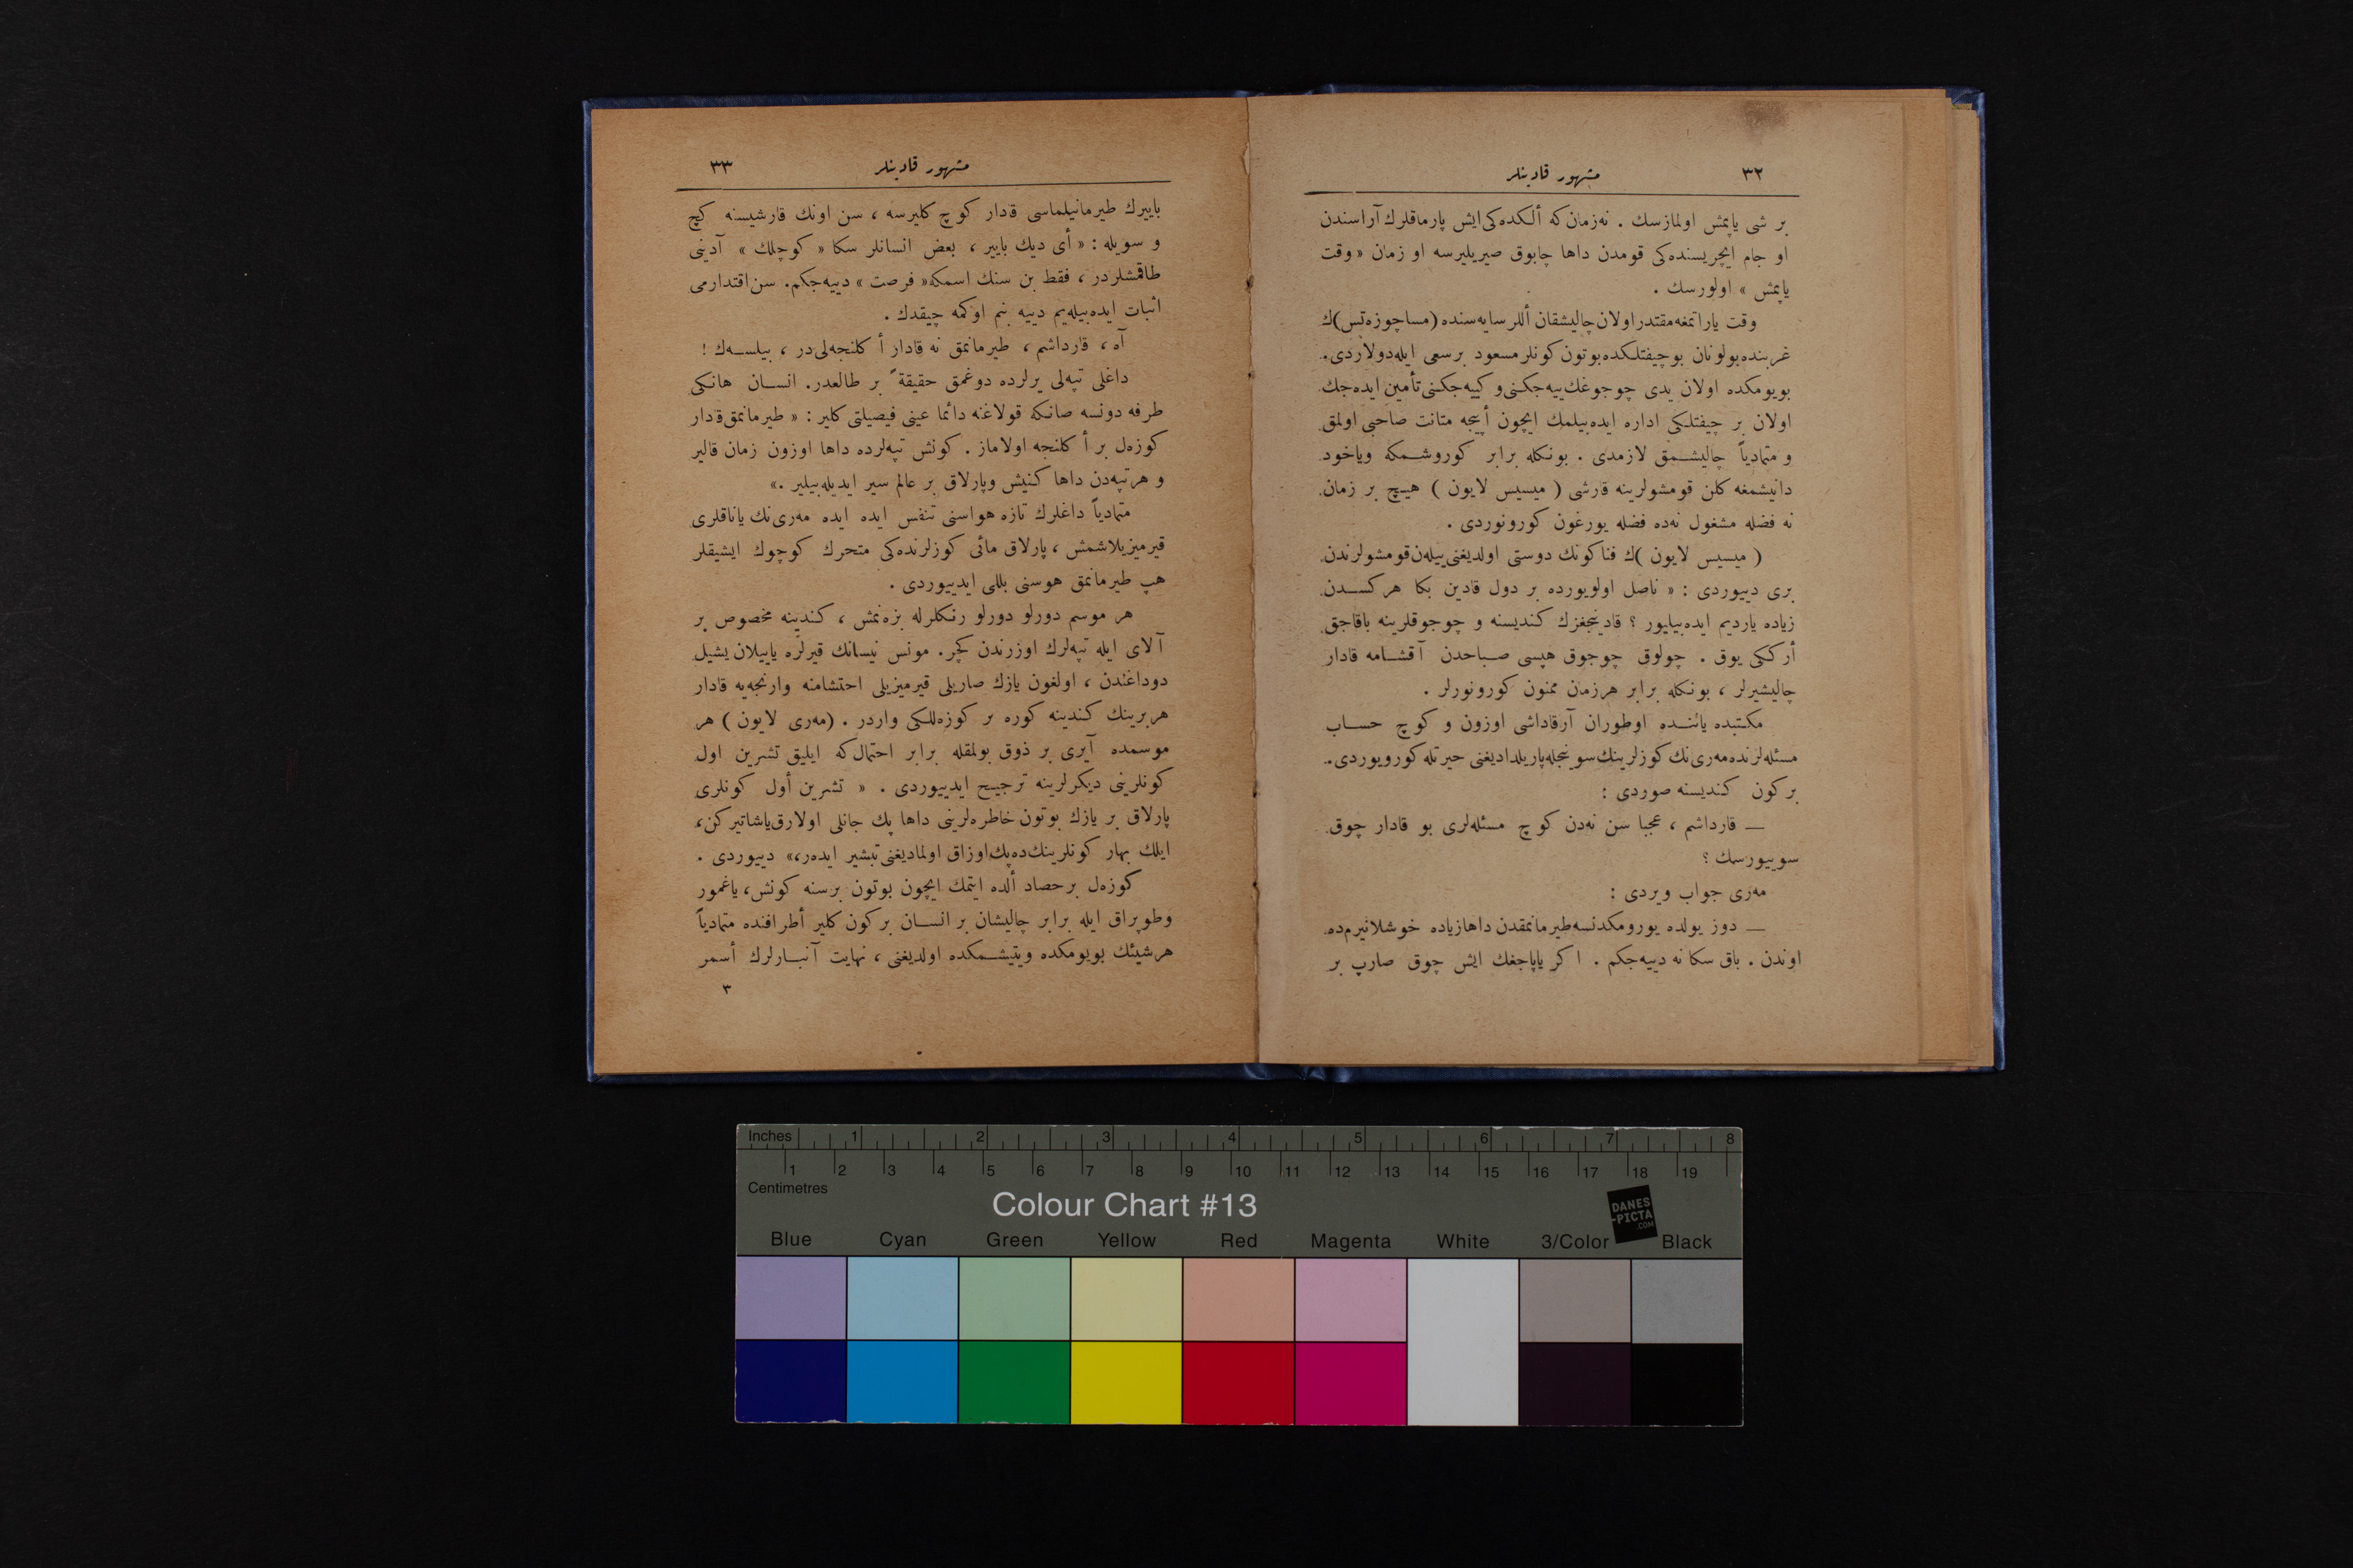 ٣٢
مشهور قادینلر
بر شی یاپمش اولمازسك . نه‌زمان‌كه ألكده‌كی ایش پارماقلرك آراسندن
او جام ایچریسنده‌كی قومدن داها چابوق صیریلیرسه او زمان « وقت
یاپمش » اولورسك .
وقت یاراتمغه مقتدر اولان چالیشقان أللر سایه‌سنده (مساچوزه‌تس)ك
غربنده بولونان بو چیفتلكده بوتون كونلر مسعود بر سعی ایله دولاردی.
بویومكده اولان یدی چوجوغك ییه‌جكنی و كییه‌جكنی تأمین ایده‌جك
اولان بر چیفتلكی اداره ایده‌بیلمك ایچون أپیجه متانت صاحبی اولمق
و متمادیاً چالیشمق لازمدی . بونكله برابر كوروشمكه ویاخود
دانیشمغه كلن قومشولرینه قارشی ( میسیس لایون ) هیچ بر زمان
نه فضله مشغول نه‌ده فضله یورغون كورونوردی .
( میسیس لایون )ك فنا كونك دوستی اولدیغنی بیله‌ن قومشولرندن
بری دییوردی : « ناصل اولویورده بر دول قادین بكا هركسدن
زیاده یاردیم ایده‌بیلیور ؟ قادینجغزك كندیسنه و چوجوقلرینه باقاجق
أرككی یوق . چولوق چوجوق هپسی صباحدن آقشامه قادار
چالیشیرلر ، بونكله برابر هرزمان ممنون كورونورلر .
مكتبده یاننده اوطوران آرقاداشی اوزون و كوچ حساب
مسئله‌لرنده مه‌ری‌نك كوزلرینك سوینجله پاریلدادیغنی حیرتله كورویوردی.
بر كون كندیسنه صوردی :
— قارداشم ، عجبا سن نه‌دن كوچ مسئله‌لری بو قادار چوق
سوییورسك ؟
مه‌ری جواب ویردی :
— دوز یولده یورومكدنسه طیرمانمقدن داها زیاده خوشلانیرم‌ده
اوندن . باق سكا نه دییه‌جكم . اكر یاپاجغك ایش چوق صارپ بر
مشهور قادینلر
٣٣
باییرك طیرمانیلماسی قادار كوچ كلیرسه ، سن اونك قارشیسنه كچ
و سویله : « أی دیك باییر ، بعض انسانلر سكا « كوچلك » آدینی
طاقمشلردر ، فقط بن سنك اسمكه « فرصت » دییه‌جكم. سن اقتدارمی
اثبات ایده‌بیله‌یم دییه بنم اوكمه چیقدك .
آه ، قارداشم ، طیرمانمق نه قادار أكلنجه‌لی‌در ، بیلسه‌ك !
داغلی تپه‌لی یرلرده دوغمق حقیقةً بر طالعدر. انسان هانكی
طرفه دونسه صانكه قولاغنه دائما عینی فیصیلتی كلیر : « طیرمانمق قادار
كوزه‌ل بر أكلنجه اولاماز . كونش تپه‌لرده داها اوزون زمان قالیر
و هر تپه‌دن داها كنیش و پارلاق بر عالم سیر ایدیله‌بیلیر .»
متمادیاً داغلرك تازه هواسنی تنفس ایده ایده مه‌ری‌نك یاناقلری
قیرمیزیلاشمش ، پارلاق مائی كوزلرنده‌كی متحرك كوچوك ایشیقلر
هپ طیرمانمق هوسنی بللی ایدییوردی .
هر موسم دورلو دورلو رنكلرله بزه‌نمش ، كندینه مخصوص بر
آلای ایله تپه‌لرك اوزرندن كچر. مونس نیسانك قیرلره یاییلان یشیل
دوداغندن ، اولغون یازك صاریلی قیرمیزیلی احتشامنه وارنجه‌یه قادار
هربرینك كندینه كوره بر كوزه‌للكی واردر . (مه‌ری لایون ) هر
موسمده آیری بر ذوق بولمقله برابر احتمال‌كه ایلیق تشرین اول
كونلرینی دیكرلرینه ترجیح ایدییوردی . « تشرین أول كونلری
پارلاق بر یازك بوتون خاطره‌لرینی داها پك جانلی اولارق یاشاتیركن،
ایلك بهار كونلرینك‌ده پك اوزاق اولمادیغنی تبشیر ایده‌ر،» دییوردی .
كوزه‌ل بر حصاد ألده ایتمك ایچون بوتون بر سنه كونش، یاغمور
وطوپراق ایله برابر چالیشان بر انسان بر كون كلیر أطرافنده متمادیاً
هرشیئك بویومكده ویتیشمكده اولدیغنی ، نهایت آنبارلرك أسمر
٣
Inches 1 2 3 4 5 6 7 8
1 2 3 4 5 6 7 8 9 10 11 12 13 14 15 16 17 18 19
Centimetres
Colour Chart #13
DANES
-PICTA
.COM
Blue Cyan Green Yellow Red Magenta White 3/Color Black